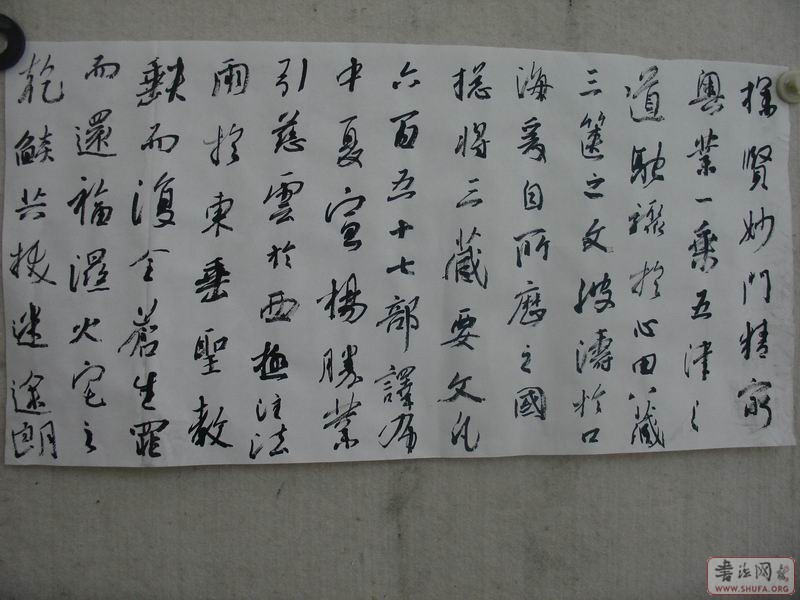 探賢妙門精窮
奧業一乘五津之
道馳驟於心田八藏
三篋之文波濤於口
海爰自所歷之國
揔將三藏要文凡
六百五十七部譯布
中夏宣揚勝業
引慈雲於西極注法
雨於東垂聖教
缺而復全蒼生罪
而還福濕火宅之
乾燄共拔迷途朗
書法网
WWW.SHUFA.ORG